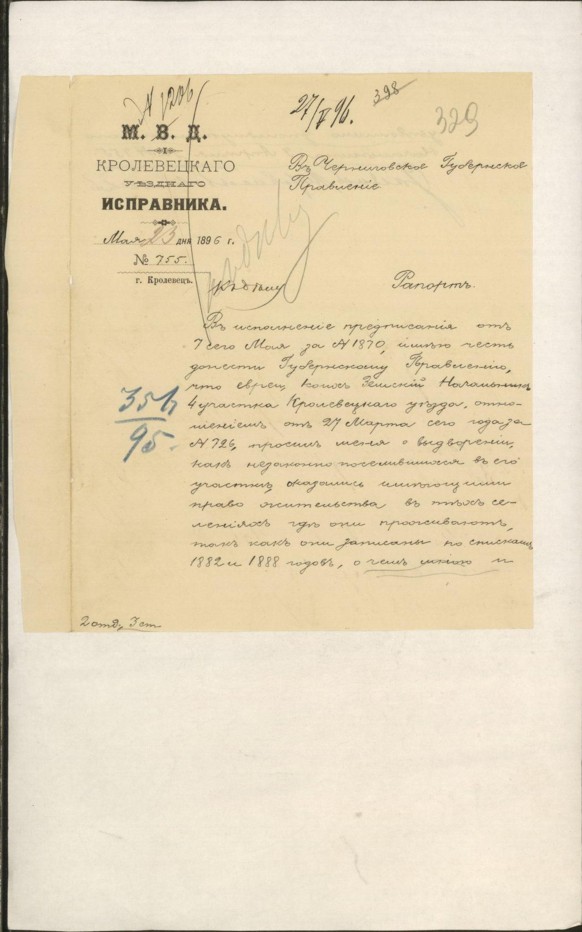 27/V 96.
398
329
М. В. Д.
КРОЛЕВЕЦКАГО
УѢЗДНАГО
ИСПРАВНИКА.
Мая 23 дня 1896 г.
№ 755.
г. Кролевецъ.
Въ Черниговское Губернское
Правленіе
Къ дѣлу
Рапортъ.
Въ исполненіе предписанія отъ
7 сего Мая за № 1870, имѣю честь
донести Губернскому Правленію,
что евреи, коихъ Земскій Начальникъ
4 участка Кролевецкаго уѣзда, отно-
шеніемъ отъ 27 Марта сего года за
№ 726, просилъ меня о выдвореніи,
какъ незаконно поселившихся въ его
участкѣ, оказались имѣющими
право жительства въ тѣхъ се-
леніяхъ гдѣ они проживаютъ,
такъ какъ они записаны по спискамъ
1882 и 1888 годовъ, о чемъ мною и
356/95.
2 отд, 3 ст